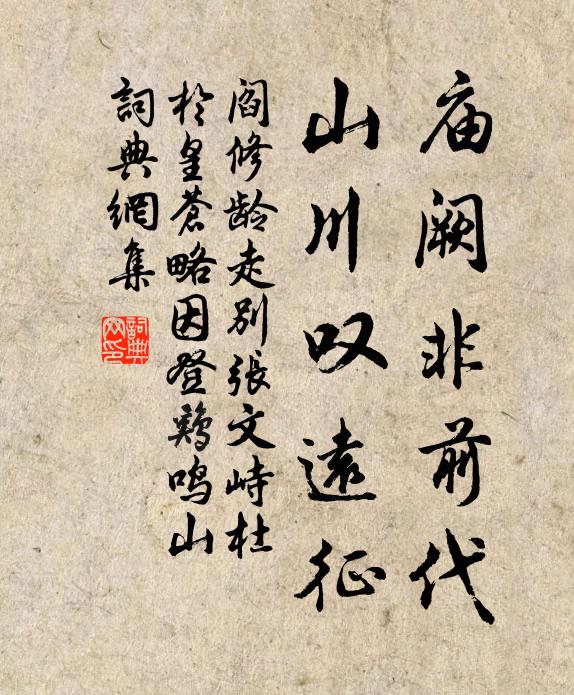 庙阙非前代
山川叹遠征
阎修龄走别張文峙杜
於皇蒼略因登鷄鸣山
詞典網集
詞典
网印